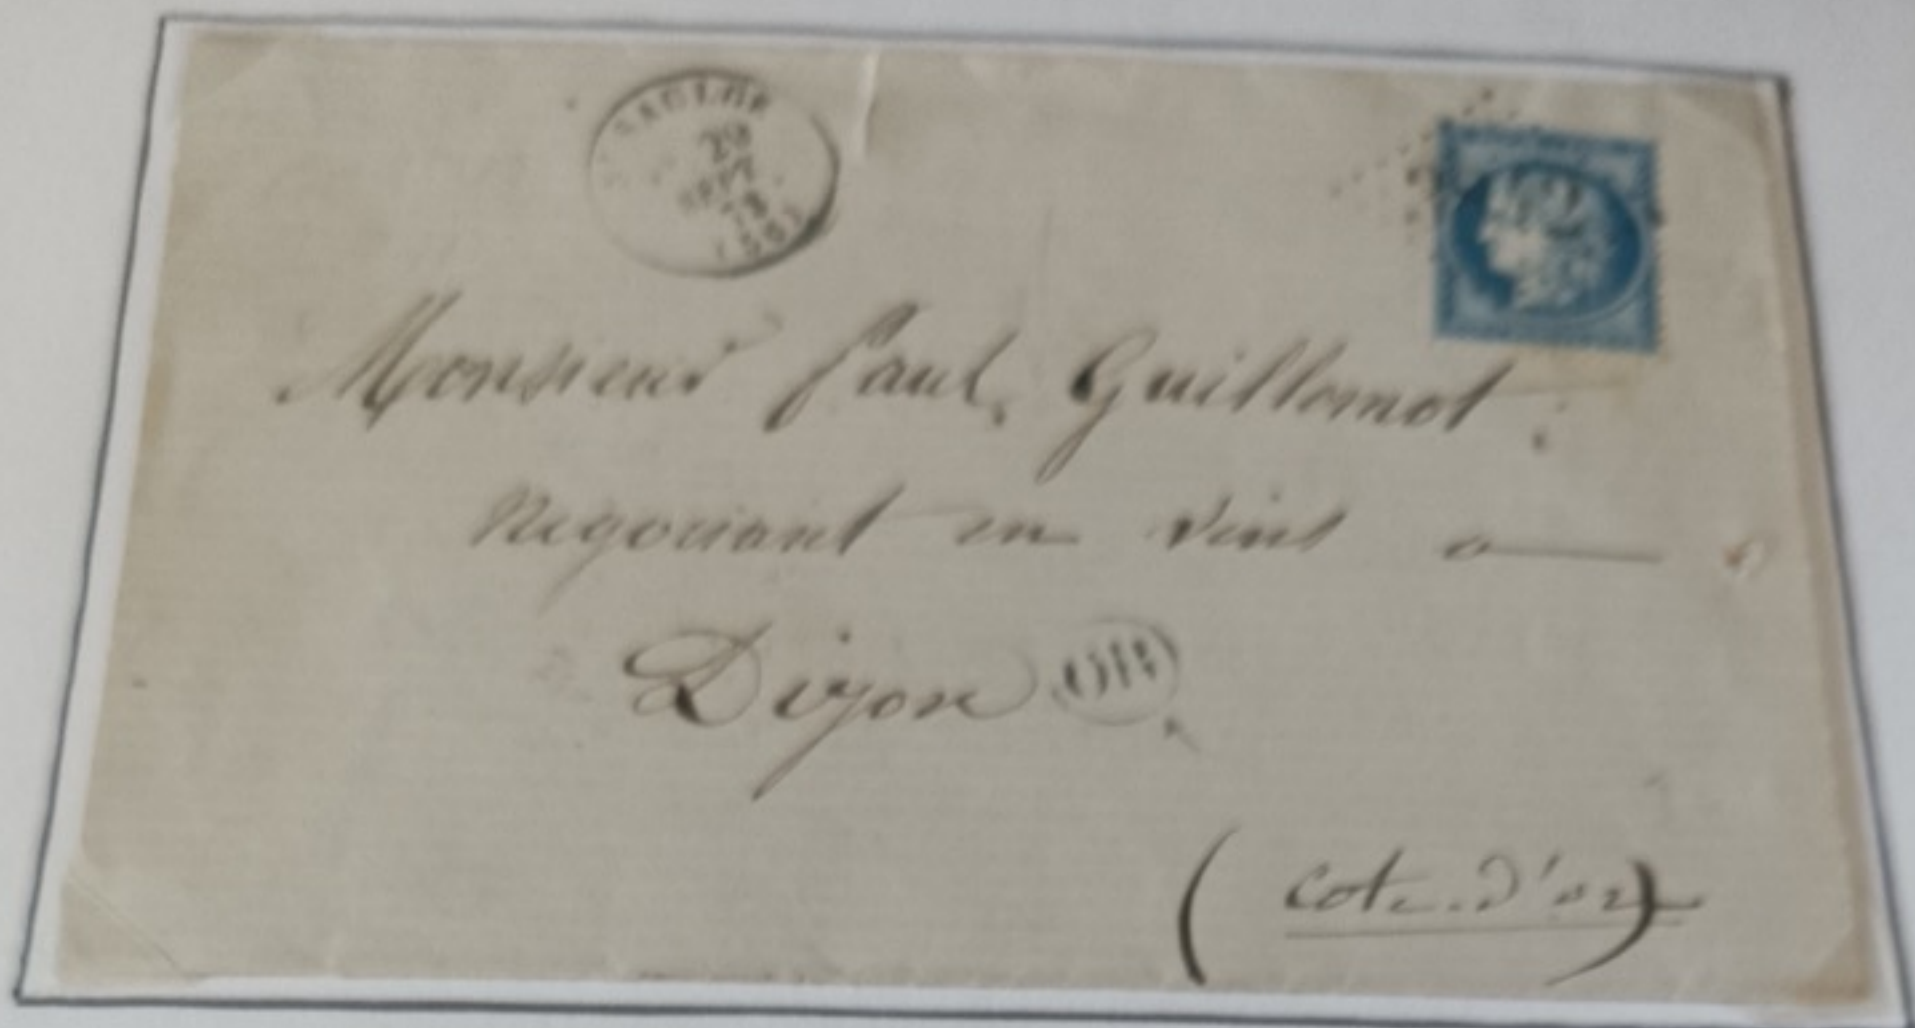 29
SEPT
73
(56)
Monsieur Paul Guillemot
négociant en vins a
Dijon OR
(cote-d'or)